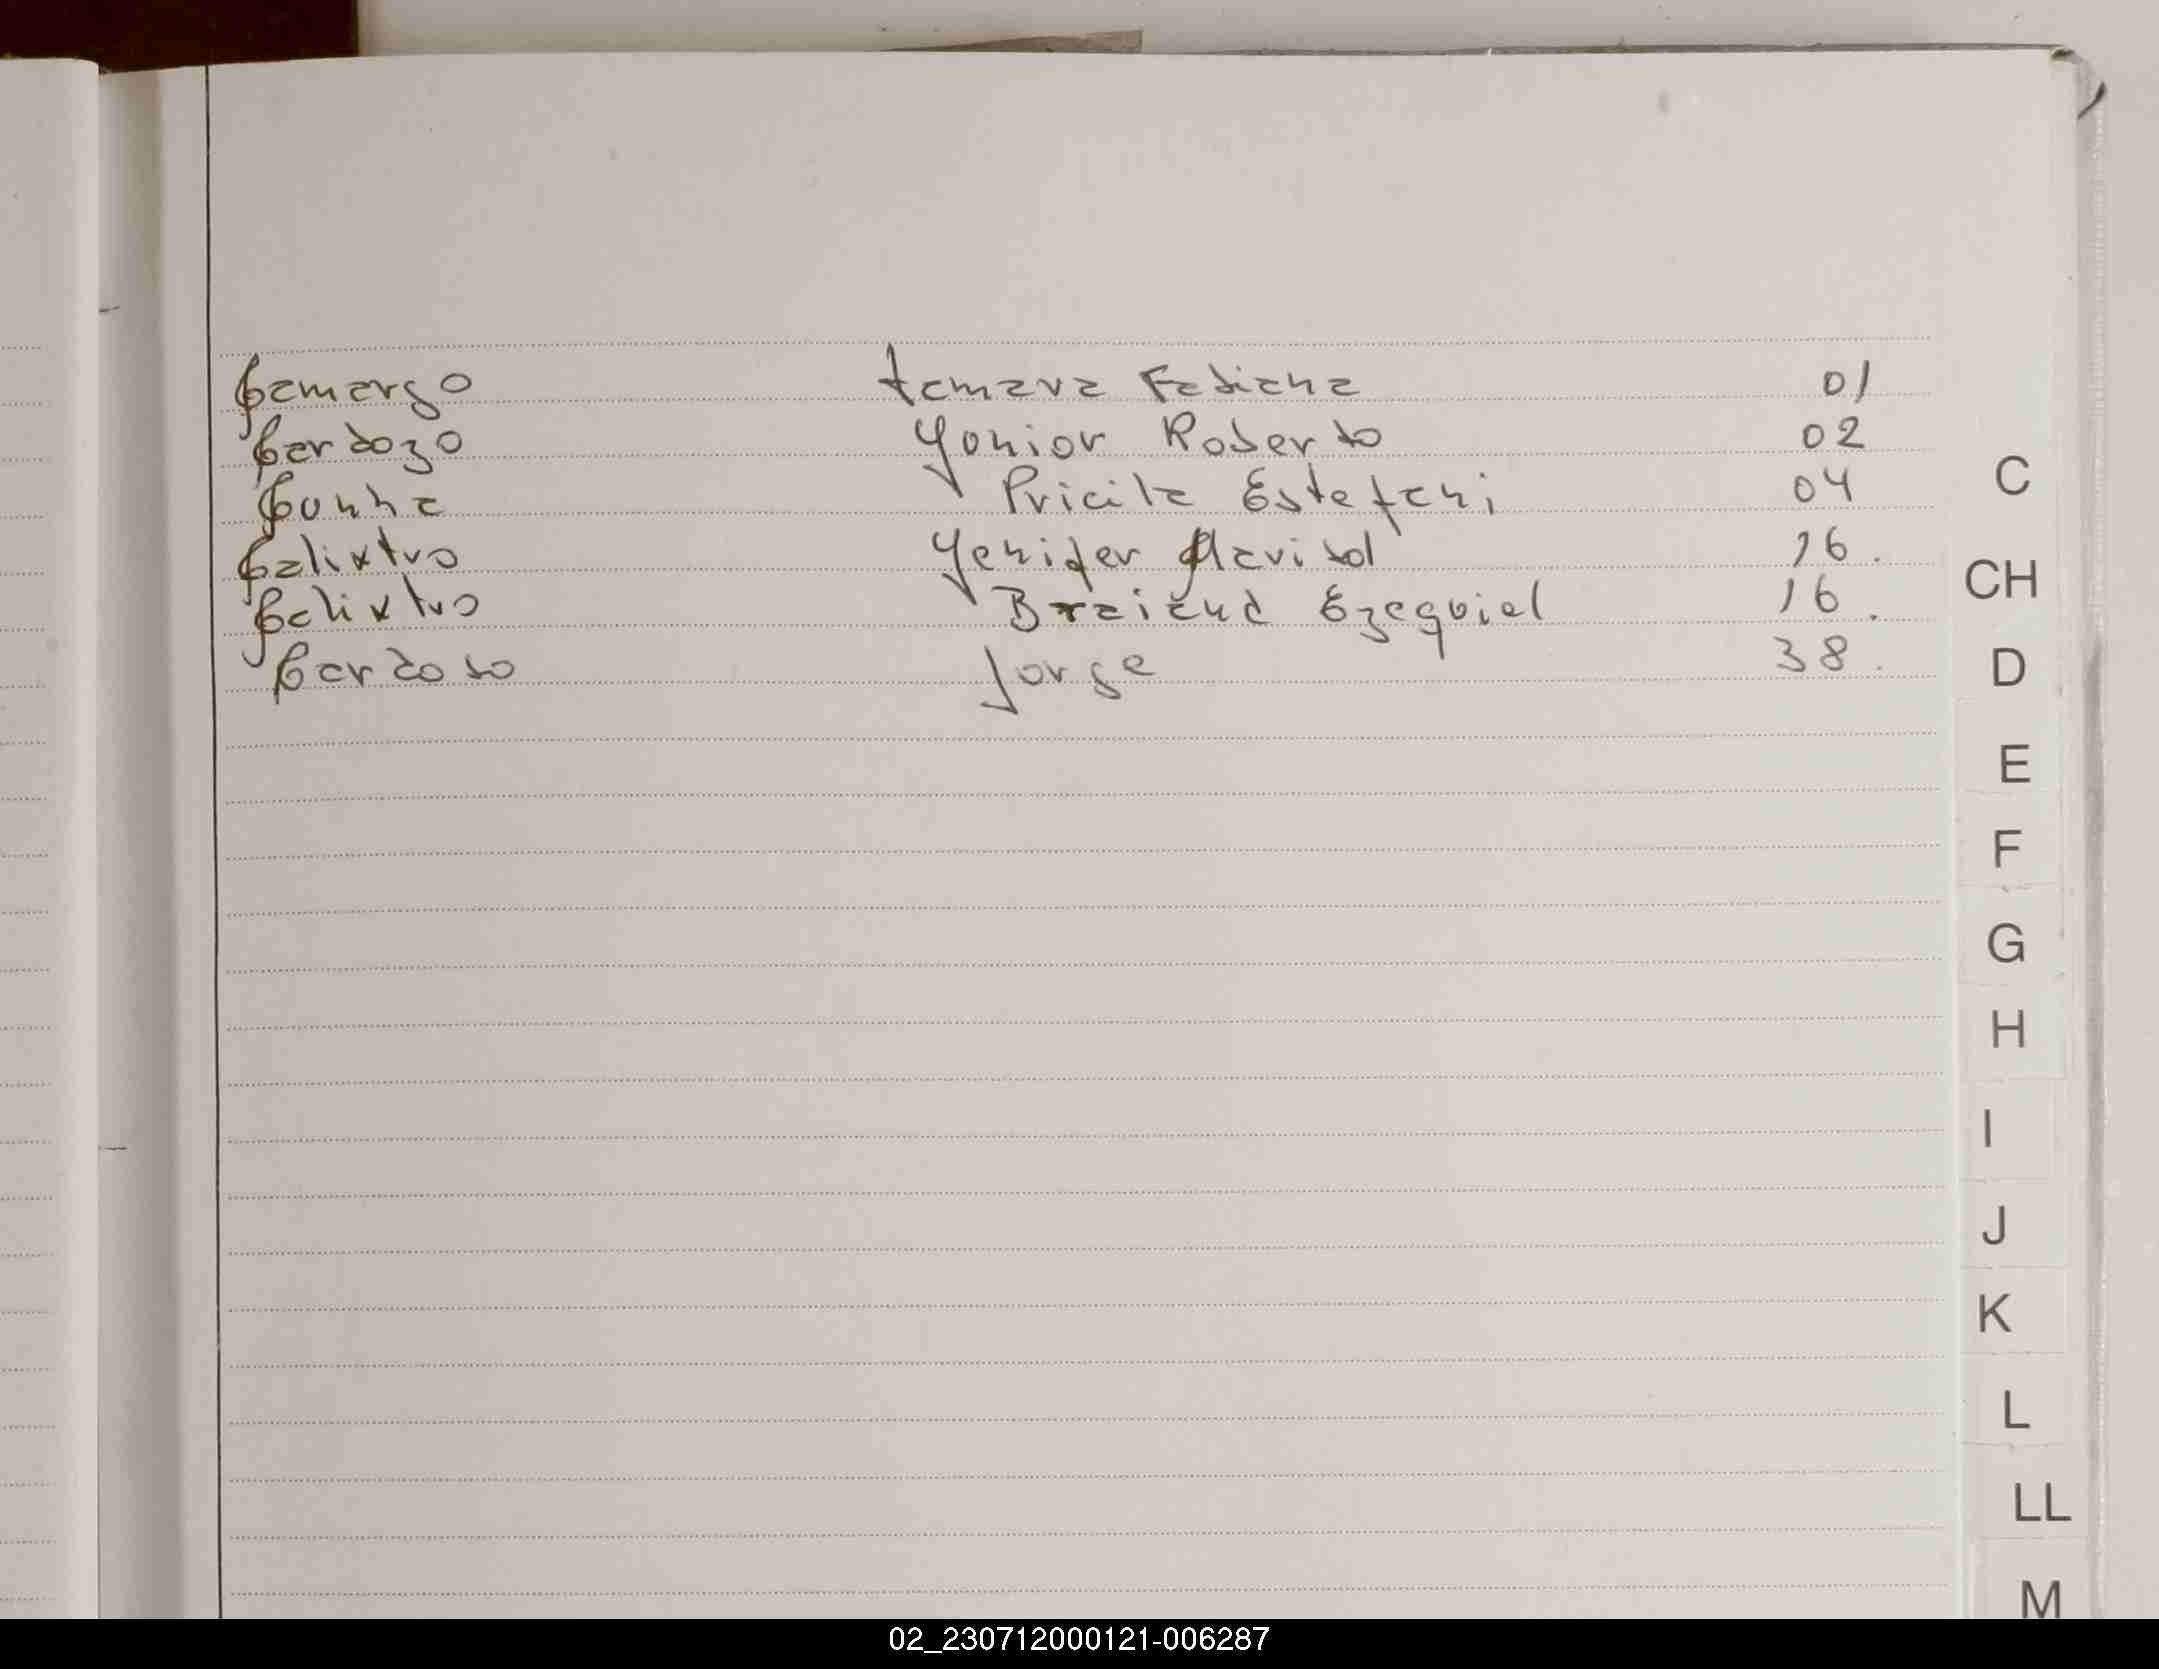 Camargo Tamara Fabiana 01
Cardozo Yonior Roberto 02
Cunha Pricila Estefani 04
C
Calixtro Yenifer Marisol 16.
CH
Calixtro Braiand Ezequiel 16.
Cardoso Jorge 38.
D
E
F
G
H
I
J
K
L
LL
M
02_230712000121-006287